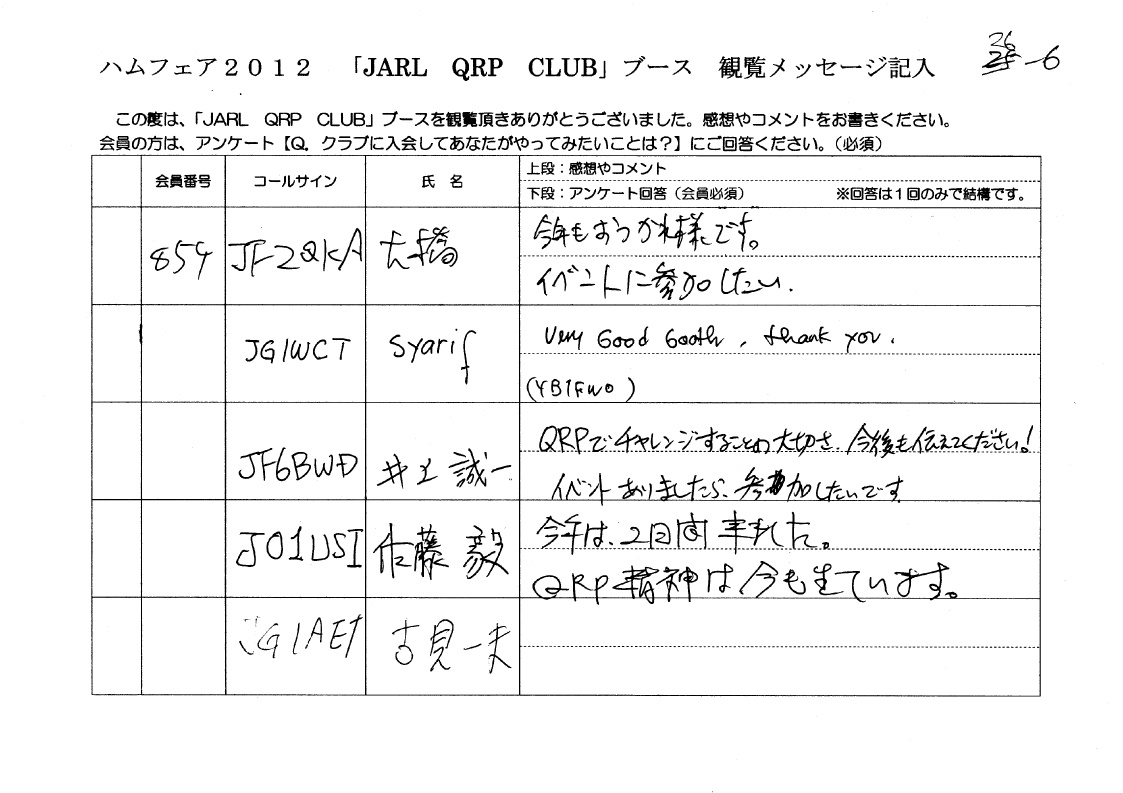 ハムフェア2012 「JARL QRP CLUB」ブース 観覧メッセージ記入
26
-6
この度は、「JARL QRP CLUB」ブースを観覧頂きありがとうございました。感想やコメントをお書きください。
会員の方は、アンケート【Q. クラブに入会してあなたがやってみたいことは?】にご回答ください。(必須)
会員番号 コールサイン 氏 名 上段:感想やコメント
下段:アンケート回答(会員必須) ※回答は1回のみで結構です。
854 JF2QKA 大橋 今年もおつかれ様です。
イベントに参加したい.
JG1WCT Syarif Very Good Booth, thank you.
(YB1FWO)
JF6BWD 井上 誠一 QRPでチャレンジすることの大切さ、今後も伝えてください!
イベントありましたら、参加したいです
JO1USI 佐藤 毅 今年は、2日間来ました。
QRP精神は今も生ています。
JG1AEI 吉見一夫